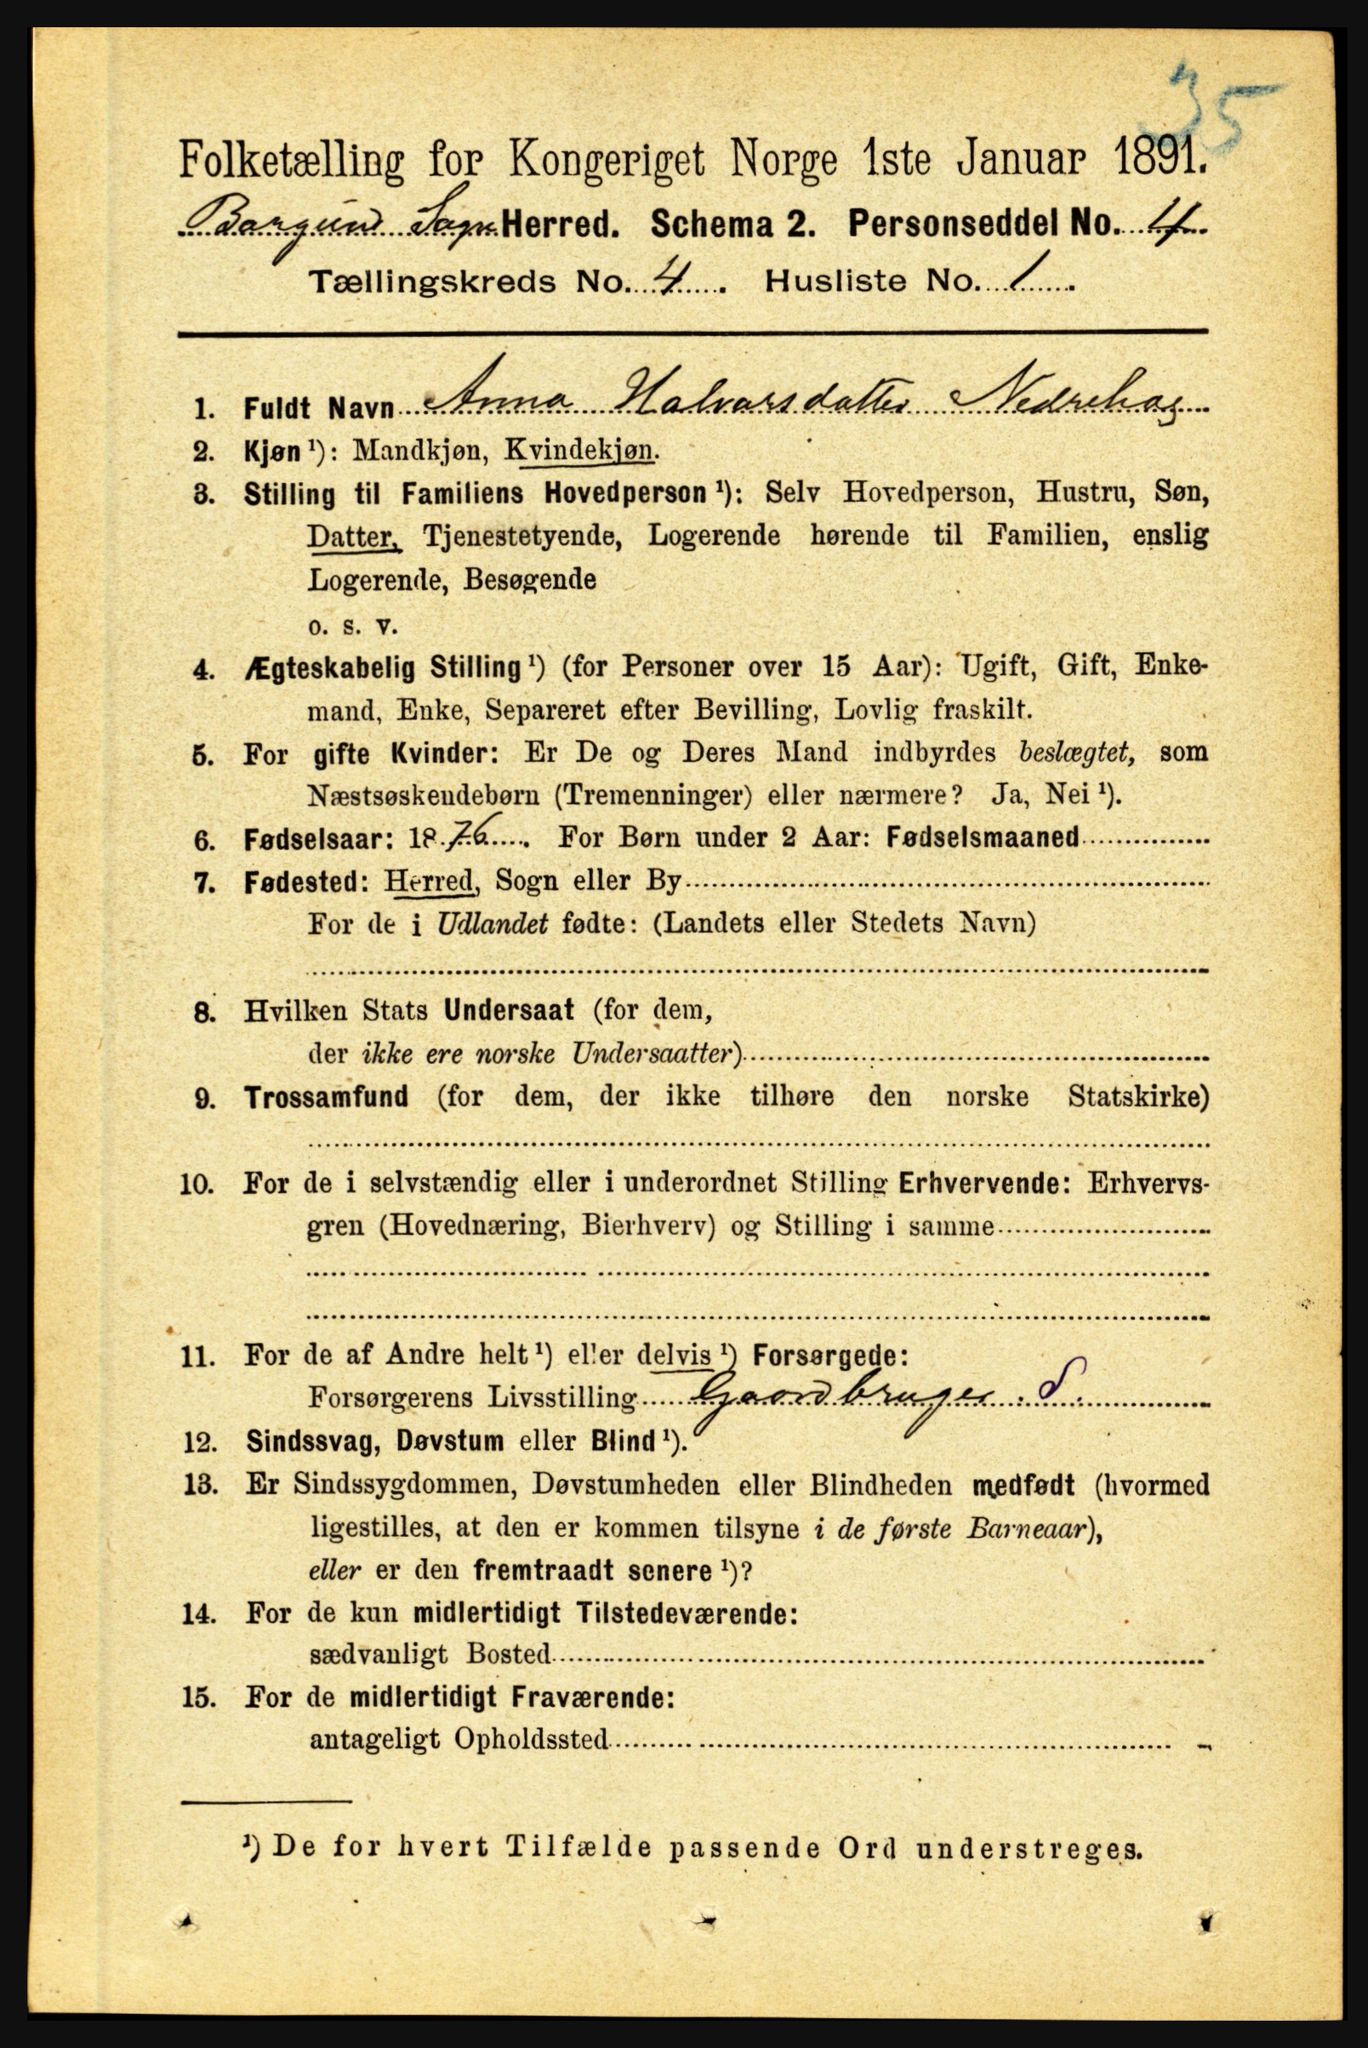 35
Folketælling for Kongeriget Norge 1ste Januar 1891.
Borgund Sogn Herred. Schema 2. Personseddel No. 4.
Tællingskreds No. 4. Husliste No. 1.
1. Fuldt Navn Anna Halvorsdatter Nedrehag
2. Kjøn ¹): Mandkjøn, Kvindekjøn.
3. Stilling til Familiens Hovedperson ¹): Selv Hovedperson, Hustru, Søn,
Datter, Tjenestetyende, Logerende hørende til Familien, enslig
Logerende, Besøgende
o. s. v.
4. Ægteskabelig Stilling ¹) (for Personer over 15 Aar): Ugift, Gift, Enke-
mand, Enke, Separeret efter Bevilling, Lovlig fraskilt.
5. For gifte Kvinder: Er De og Deres Mand indbyrdes beslægtet, som
Næstsøskendebørn (Tremenninger) eller nærmere? Ja, Nei ¹).
6. Fødselsaar: 1876. For Børn under 2 Aar: Fødselsmaaned
7. Fødested: Herred, Sogn eller By
For de i Udlandet fødte: (Landets eller Stedets Navn)
8. Hvilken Stats Undersaat (for dem,
der ikke ere norske Undersaatter)
9. Trossamfund (for dem, der ikke tilhøre den norske Statskirke)
10. For de i selvstændig eller i underordnet Stilling Erhvervende: Erhvervs-
gren (Hovednæring, Bierhverv) og Stilling i samme
11. For de af Andre helt ¹) eller delvis ¹) Forsørgede:
Forsørgerens Livsstilling Gaardbruger. S.
12. Sindssvag, Døvstum eller Blind ¹).
13. Er Sindssygdommen, Døvstumheden eller Blindheden medfødt (hvormed
ligestilles, at den er kommen tilsyne i de første Barneaar),
eller er den fremtraadt senere ¹)?
14. For de kun midlertidigt Tilstedeværende:
sædvanligt Bosted
15. For de midlertidigt Fraværende:
antageligt Opholdssted
¹) De for hvert Tilfælde passende Ord understreges.